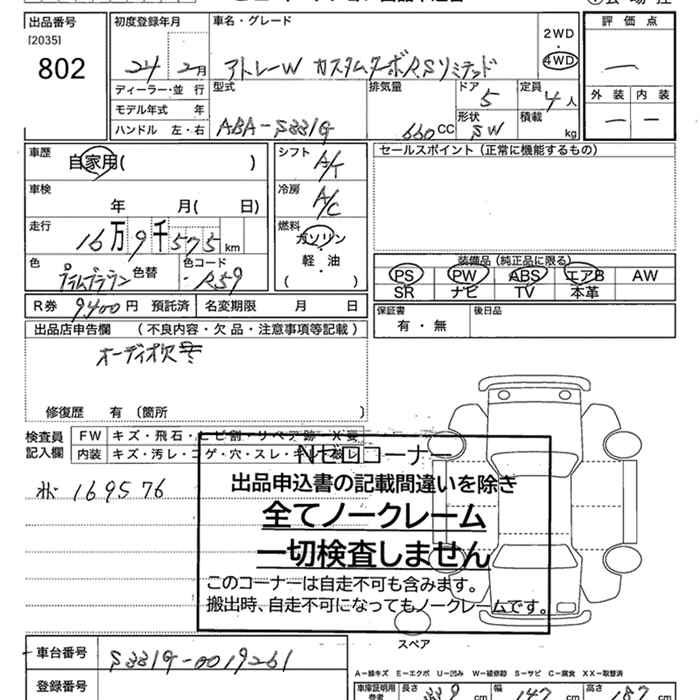 出品番号
[2035]
802
初度登録年月
24 2月
車名・グレード
アトレーW カスタムターボRSリミテッド
2WD
4WD
評価点
—
外装 内装
— —
ディーラー・並 行
モデル年式 年
ハンドル 左・右
型式
ABA-S331G
排気量
660CC
ドア
5
形状
SW
定員
4人
積載
kg
車歴
自家用( )
車検
年 月( 日)
走行
16万9千575km
色
プラムブラウン
色替
色コード
R59
シフト
A/T
冷房
A/C
燃料
ガソリン
軽・油
( )
セールスポイント(正常に機能するもの)
装備品(純正品に限る)
PS PW ABS エアB AW
SR ナビ TV 本革
R券 9,400円 預託済
名変期限 月 日
保証書
有・無
後日品
出品店申告欄 (不良内容・欠品・注意事項等記載)
オーディオ欠品
修復歴 有 〔箇所 〕
検査員
記入欄
FW キズ・飛石・ヒビ割・リペア跡・X要
内装 キズ・汚レ・コゲ・穴・スレ
169576
Nゼロコーナー
出品申込書の記載間違いを除き
全てノークレーム
一切検査しません
このコーナーは自走不可も含みます。
搬出時、自走不可になってもノークレームです。
スペア
車台番号
S331G-0019261
登録番号
A-線キズ E-エクボ U-凹み W-補修跡 S-サビ C-腐食 XX-取替済
車庫証明用
参考
長さ 339 cm
幅 147 cm
高さ 187 cm